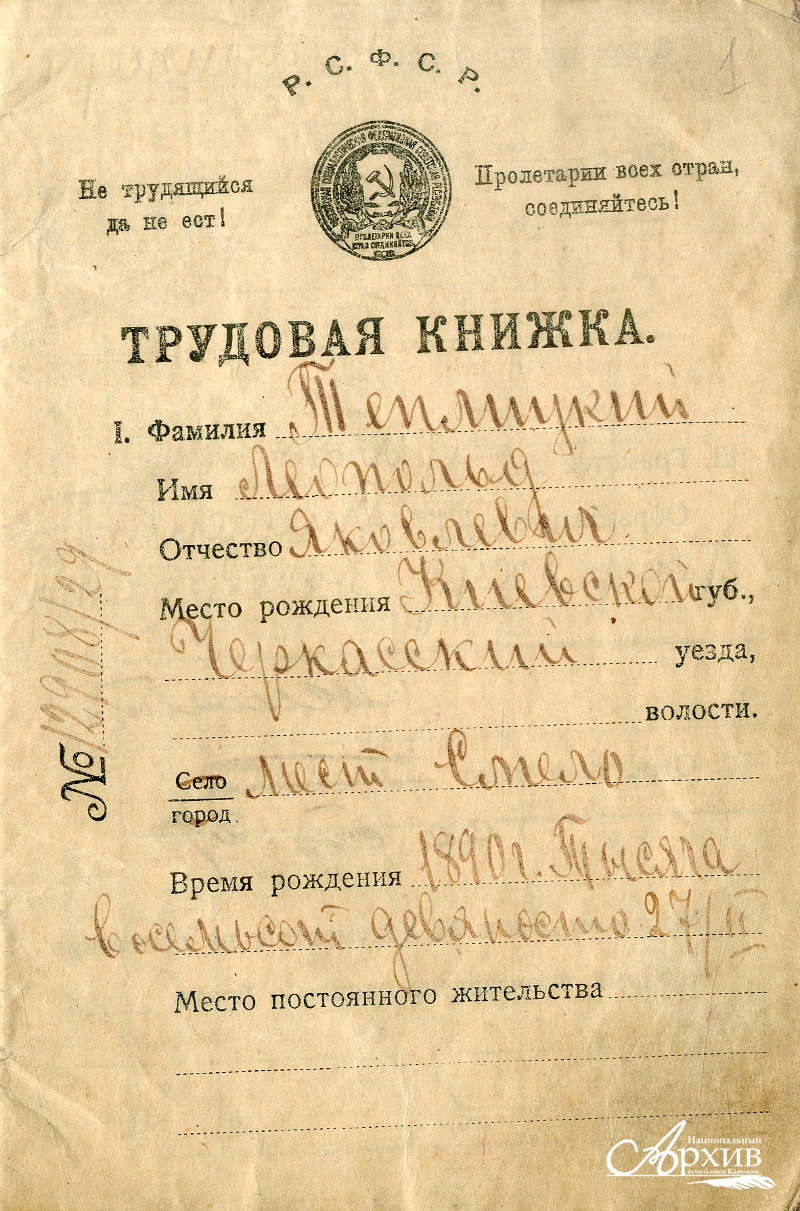 1
Р. С. Ф. С. Р.
Не трудящийся
да не ест!
РОССИЙСКАЯ СОЦИАЛИСТИЧЕСКАЯ ФЕДЕРАТИВНАЯ СОВЕТСКАЯ РЕСПУБЛИКА
ПРОЛЕТАРИИ ВСЕХ
СТРАН СОЕДИНЯЙТЕСЬ
Пролетарии всех стран,
соединяйтесь!
ТРУДОВАЯ КНИЖКА.
I. Фамилия Теплицкий
Имя Леопольд
Отчество Яковлевич
Место рождения Киевской губ.,
Черкасский уезда,
волости.
Село мест Смело
город.
Время рождения 1890 г. Тысяча
восемьсот девяносто 27/II
Место постоянного жительства
№ 12908/29
Национальный
Архив
республики Карелия